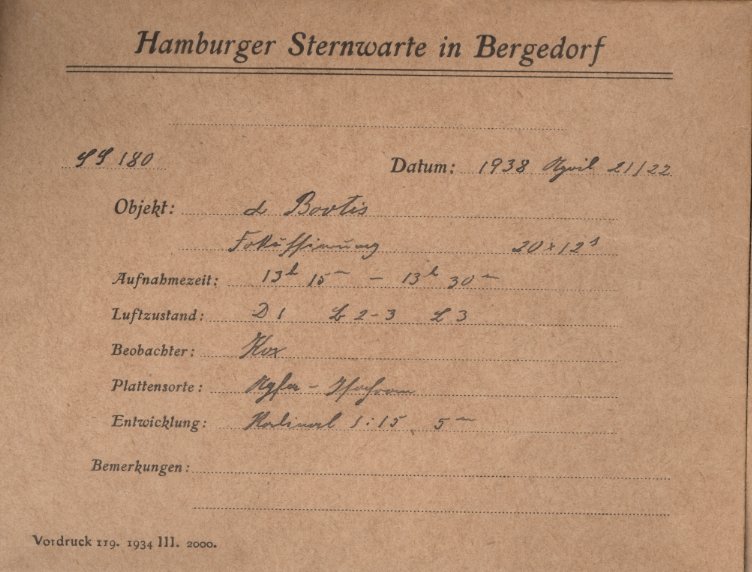 Hamburger Sternwarte in Bergedorf
180 Datum: 1938 April 21/22
Objekt: α Bootis
Fokussierung 20 × 12ˢ
Aufnahmezeit: 13ʰ 15ᵐ – 13ʰ 30ᵐ
Luftzustand: D 1 2–3 3
Beobachter: Kox
Plattensorte: Agfa – Isochrom
Entwicklung: Rodinal 1:15, 5ᵐ
Bemerkungen:
Vordruck 119. 1934 III. 2000.